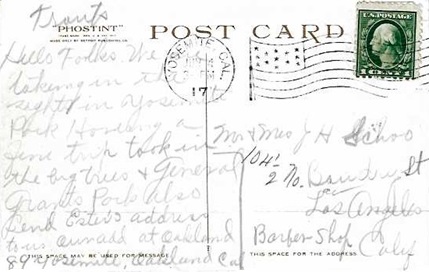 "PHOSTINT"
MADE ONLY BY DETROIT PUBLISHING CO.
POST CARD
YOSEMITE, CAL.
17
U.S. POSTAGE
1 CENT 1
Hello Folks. We
taking in the
sights in Yosemite
Park Having a
fine trip took in
the big trees & General
Grants Park also
Send Esters address
to us at Oakland
89 Yosemite, Oakland Cal
Mr & Mrs J H
104½ No. St
Los Angeles
Barber Shop Calif
THIS SPACE MAY BE USED FOR MESSAGE
THIS SPACE FOR THE ADDRESS